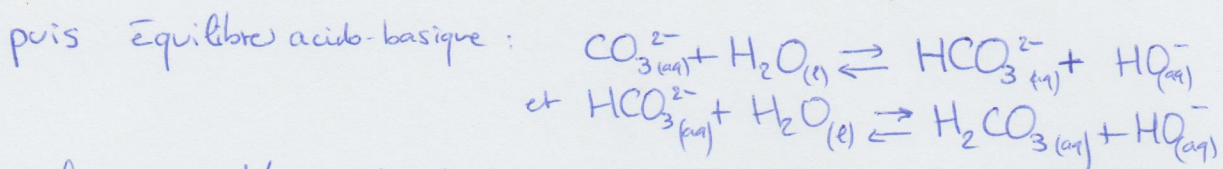 puis équilibre acido-basique : CO₃²⁻(aq) + H₂O(l) ⇌ HCO₃²⁻(aq) + HO⁻(aq)
et HCO₃²⁻(aq) + H₂O(l) ⇌ H₂CO₃(aq) + HO⁻(aq)